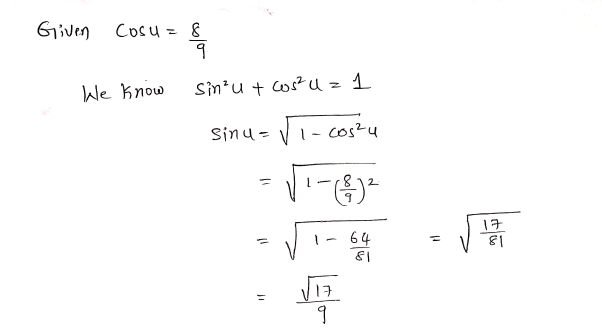 Given cosu = 8/9
We know sin²u + cos²u = 1
sinu = √(1 - cos²u)
= √(1 - (8/9)²)
= √(1 - 64/81) = √(17/81)
= √17/9